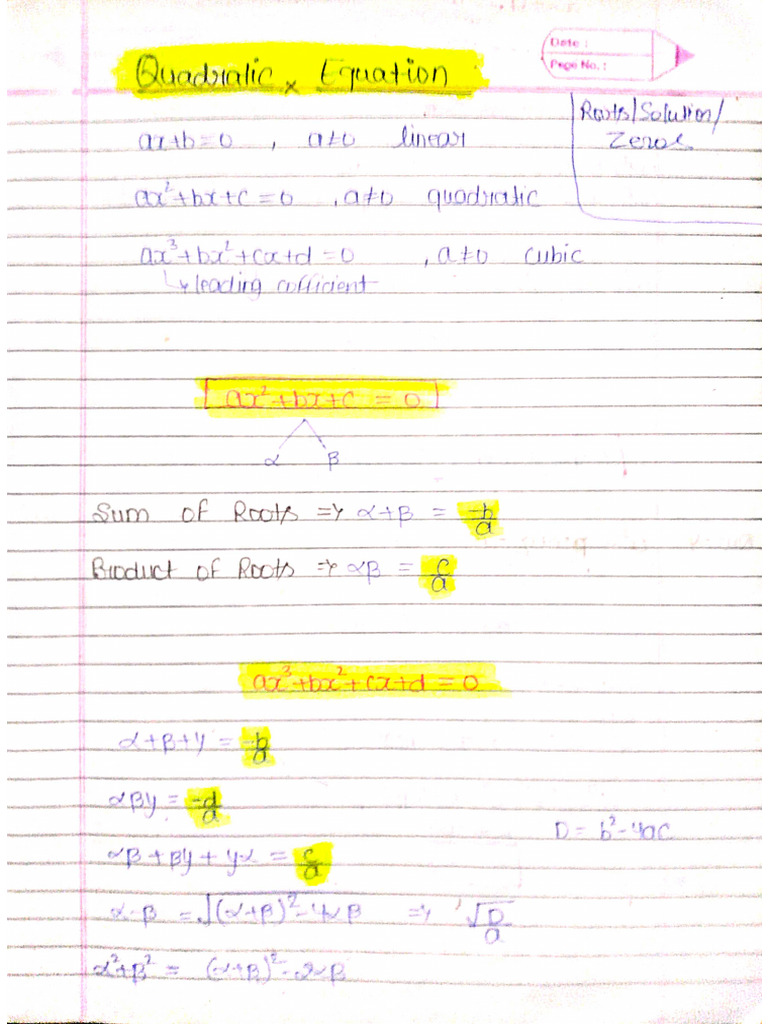 Date :
Page No. :
Quadratic Equation
Roots/Solution/
Zeros
ax+b=0 , a≠0 linear
ax²+bx+c=0 , a≠0 quadratic
ax³+bx²+cx+d=0 , a≠0 cubic
↳ leading cofficient
ax²+bx+c = 0
α β
Sum of Roots ⇒ α+β = -b/a
Product of Roots ⇒ αβ = c/a
ax³+bx²+cx+d=0
α+β+γ = -b/a
αβγ = -d/a
D = b²-4ac
αβ+βγ+γα = c/a
α-β = √(α+β)²-4αβ ⇒ √D/a
α²+β² = (α+β)²-2αβ